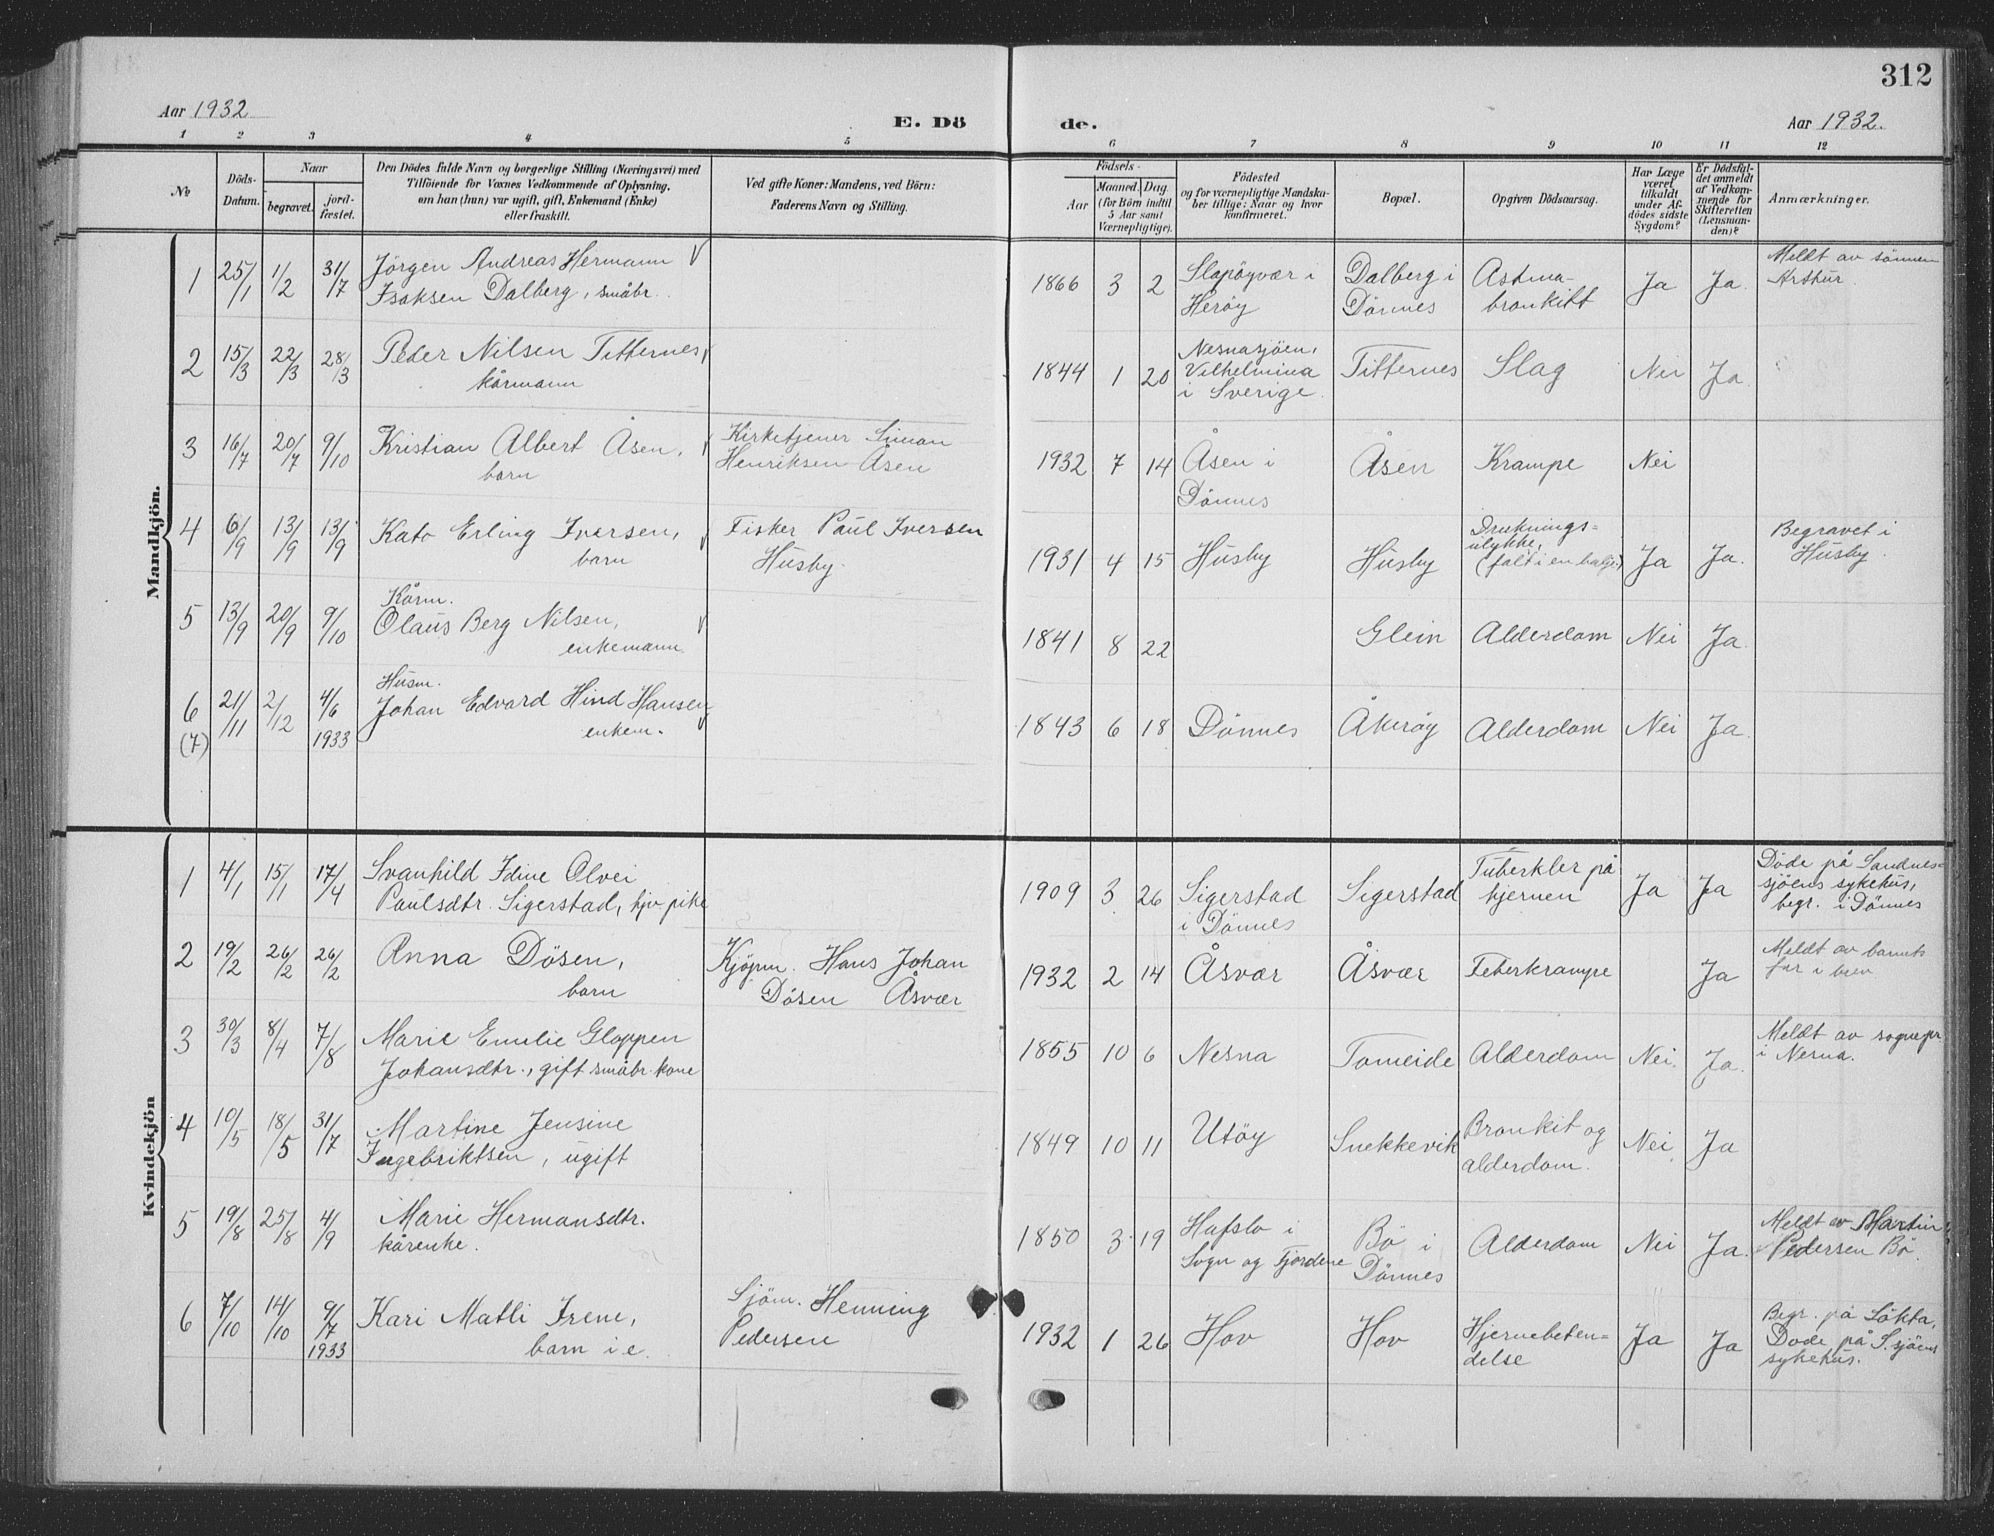 312
Aar 1932
E. Dö
de.
Aar 1932.
1 2 3 4 5 6 7 8 9 10 11 12
No
Döds-
Datum.
Naar
begravet.
jord-
fæstet.
Den Dödes fulde Navn og borgerlige Stilling (Næringsvei) med
Tilföiende for Voxnes Vedkommende af Oplysning,
om han (hun) var ugift, gift, Enkemand (Enke)
eller fraskilt.
Ved gifte Koner: Mandens, ved Börn:
Faderens Navn og Stilling.
Födsels-
Aar
Maaned. Dag.
(for Börn indtil
5 Aar samt
Værnepligtige).
Födested
og for værnepligtige Mandska-
ber tillige: Naar og hvor
konfirmeret.
Bopæl.
Opgiven Dödsaarsag.
Har Læge
været
tilkaldt
under Af-
dödes sidste
Sygdom?
Er Dödsfal-
det anmeldt
af Vedkom-
mende for
Skifteretten
(Lensman-
den)?
Anmærkninger.
Mandkjön.
1 25/1 1/2 31/7 Jörgen Andreas Hermann
Isaksen Dalberg, småbr.
1866 3 2 Slapöyvær i
Heröy
Dalberg i
Dönnes
Astma-
bronkitt
Ja Ja
Meldt av sönnen
Arthur
2 15/3 22/3 28/3 Peder Nilsen Titternes
kårmann
1844 1 20 Nesnasjöen,
Vilhelmina
i Sverige.
Titternes Slag Nei Ja
3 16/7 20/7 9/10 Kristian Albert Åsen,
barn
Kirketjener Simon
Henriksen Åsen
1932 7 14 Åsen i
Dönnes
Åsen Krampe Nei
4 6/9 13/9 13/9 Kato Erling Iversen,
barn
Fisker Paul Iversen
Husby.
1931 4 15 Husby Husby
Druknings-
ulykke,
(falt i en balje)
Ja Ja.
Begravet i
Husby.
5 13/9 20/9 9/10 Kårm.
Olaus Berg Nilsen,
enkemann
1841 8 22 Glein Alderdom Nei Ja
6 (7) 21/11 2/12 4/6 1933 Husm.
Johan Edvard Hind Hansen
enkem.
1843 6 18 Dönnes Åkeröy Alderdom Nei Ja
Kvindekjön
1 4/1 15/1 17/4 Svanhild Idine Olvei
Paulsdtr. Sigerstad, hjv. pike
1909 3 26 Sigerstad
i Dönnes
Sigerstad
Tuberkler på
hjernen
Ja Ja
Döde på Sandnes-
sjöens sykehus,
begr. i Dönnes
2 19/2 26/2 26/2 Anna Dösen,
barn
Kjöpm. Hans Johan
Dösen Åsvær
1932 2 14 Åsvær Åsvær Feberkrampe Ja
Meldt av barnets
far i brev
3 30/3 8/4 7/8 Marie Emilie Gloppen
Johansdtr., gift småbr. kone
1855 10 6 Nesna Tomeide Alderdom Nei. Ja.
Meldt av sognepr
i Nesna.
4 10/5 18/5 31/7 Martine Jensine
Ingebriktsen, ugift
1849 10 11 Utöy Snekkevik
Bronkit og
alderdom.
Nei Ja
5 19/8 25/8 4/9 Marie Hermansdtr.
kårenke.
1850 3 19 Hafslo i
Sogn og Fjordene
Bö i
Dönnes
Alderdom Nei Ja.
Meldt av Martin
Pedersen Bö.
6 7/10 14/10 9/7 1933 Kari Matli Irene,
barn i.e.
Sjöm. Henning
Pedersen
1932 1 26 Hov Hov
Hjernebeten-
delse
Ja Ja
Begr. på Lökta,
Döde på S.sjöens
sykehus.